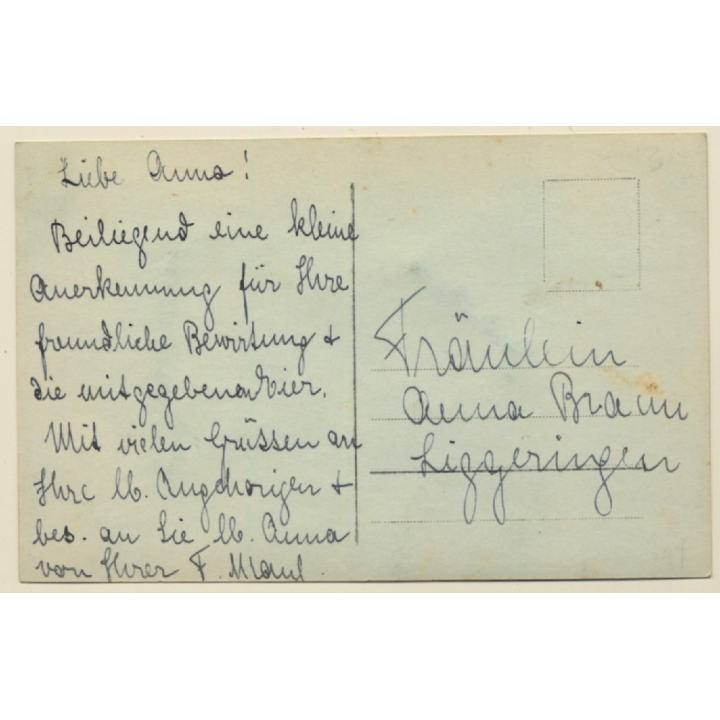 Liebe Anna!
Beiliegend eine kleine
Anerkennung für Ihre
freundliche Bewirtung +
die mitgegebenen Eier.
Mit vielen Grüssen an
Ihre lb. Angehörigen +
bes. an Sie lb. Anna
von Ihrer F. Maul
Fräulein
Anna Braun
Liggeringen